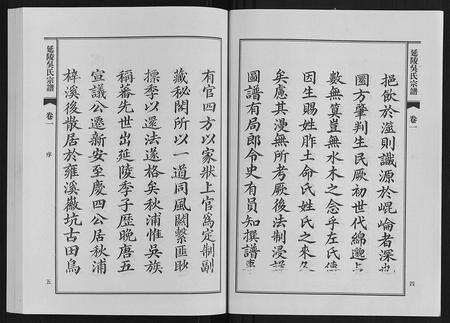 延陵吳氏宗譜
卷一
四
挹飲於濫則識源於崐崘者深也
圜方肇判生民厥初世代綿邈
數無冥豈無水木之念乎左氏傳
因生賜姓胙土命氏姓氏之來久
矣慮其漫無所考厥後法制浸
圖譜有局郎令史有員知撰譜
有官四方以家狀上官為定制副
藏秘閣所以一道同風關繫匪眇
標季以還法遂格矣秋浦惟吳族
稱蕃先世出延陵季子歷晚唐五
宣議公遷新安至慶四公居秋浦
梓溪後散居於雍溪嶽坑古田鳥
延陵吳氏宗譜
卷一
序
五